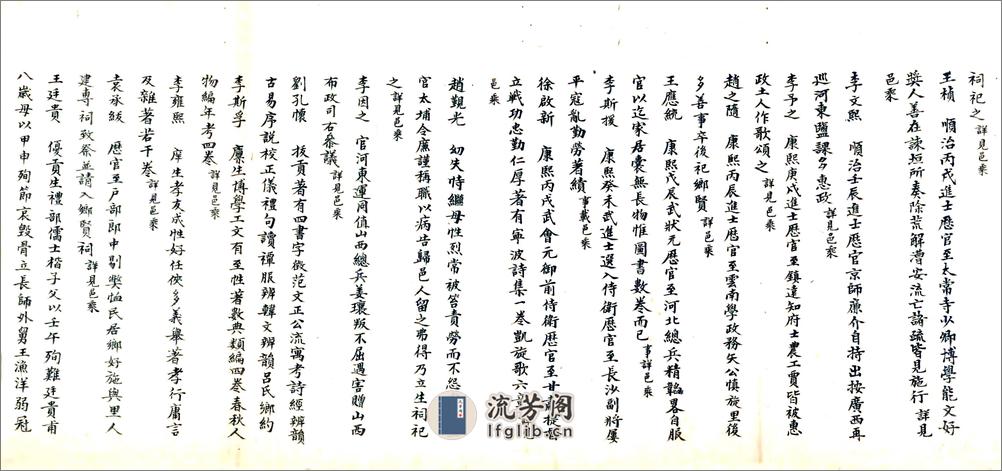 祠祀之詳見邑乘
王楨　順治丙戌進士歷官至太常寺少卿博學能文好
奬人善在諫垣所奏除荒解漕安流亡論疏皆見施行詳見
邑乘
李文熙　順治壬辰進士歷官京師廉介自持出按廣西再
巡河東鹽課多惠政詳見邑乘
李予之　康熙庚戌進士歷官至鎮遠知府士農工賈皆被惠
政土人作歌頌之詳見邑乘
趙之隨　康熙丙辰進士歷官至雲南學政務矢公慎旋里後
多善事卒後祀鄉賢詳邑乘
王應統　康熙戊辰武狀元歷官至河北總兵精韜畧自服
官以迄家居囊無長物惟圖書數卷而已事詳邑乘
李斯援　康熙癸未武進士選入侍衛歷官至長沙副將屢
平寇亂勤勞著績事載邑乘
徐啟新　康熙丙戌武會元御前侍衛歷官至甘肅提督
立戰功忠勤仁厚著有寧波詩集一卷凱旋歌六
邑乘
趙觀光　幼失恃繼母性烈常被笞責勞而不怨
官大埔令廉謹稱職以病告歸邑人留之弗得乃立生祠祀
之詳見邑乘
李因之　官河東運同值山西總兵姜瓖叛不屈遇害贈山西
布政司右叅議詳見邑乘
劉孔懷　拔貢著有四書字徵范文正公流寓考詩經辨韻
古易序說校正儀禮句讀禫服辨韓文辨韻呂氏鄉約
李斯孚　廩生博學工文有至性著數典類編四卷春秋人
物編年考四卷詳見邑乘
李雍熙　庠生孝友成性好任俠多義舉著孝行庸言
及雜著若干卷詳見邑乘
袁承紱　歷官至戶部郎中剔獘恤民居鄉好施與里人
建專祠致祭並請入鄉賢祠詳見邑乘
王廷貴　優貢生禮部儒士楷子父以壬午殉難廷貴甫
八歲母以甲申殉節哀毀骨立長師外舅王漁洋弱冠
流芳阁
lfglib.cn